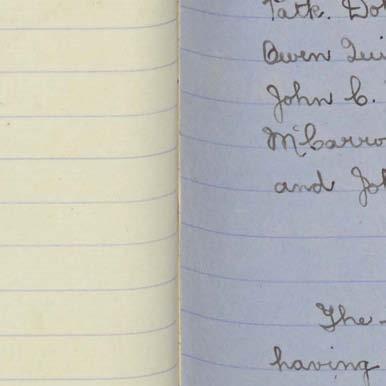 Patk. Do
Owen Qui
John C.
McCarro
and Joh
The
having